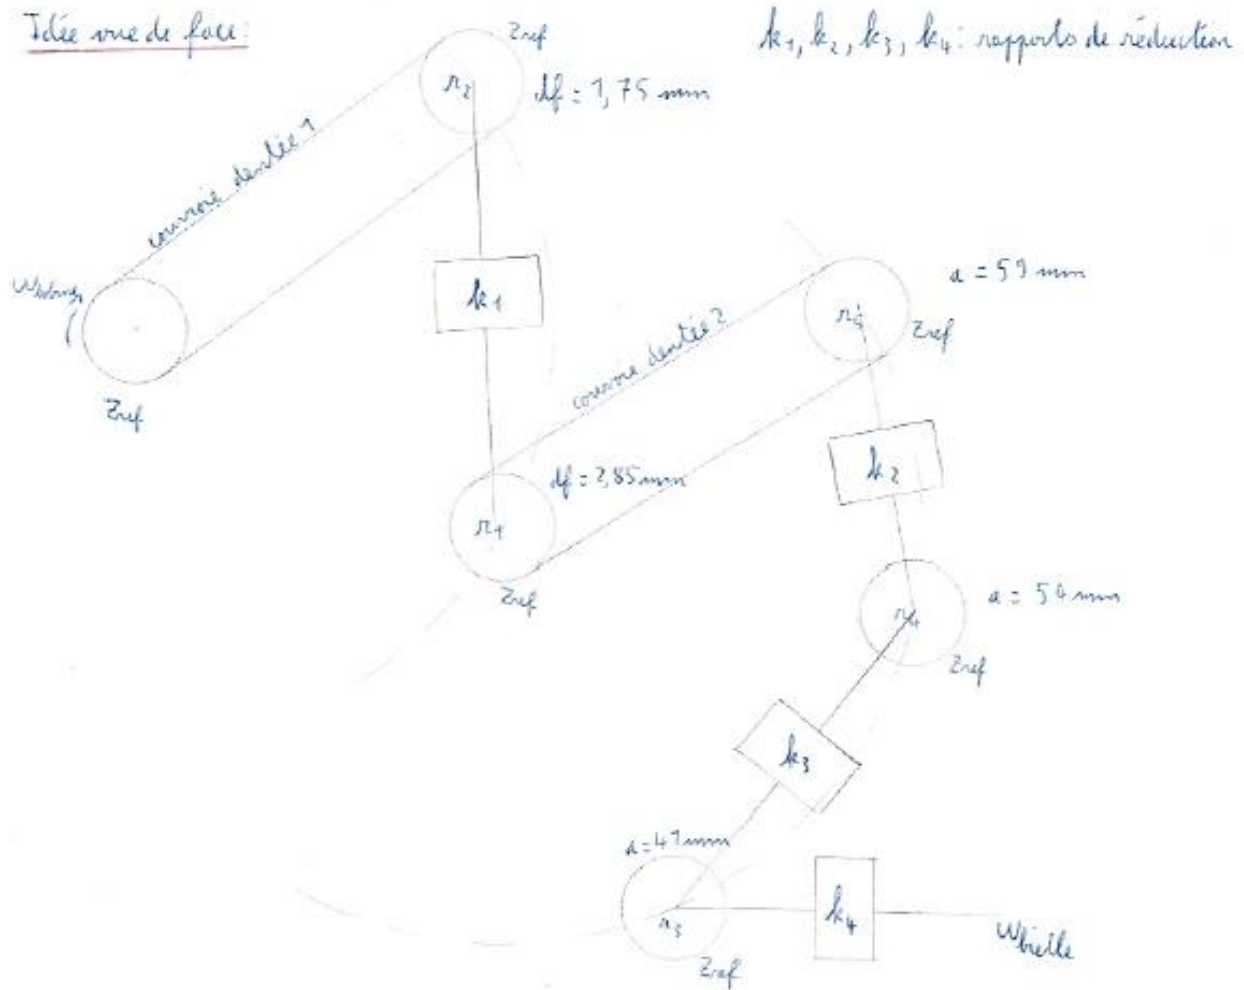 Idée vue de face:
k1, k2, k3, k4: rapports de réduction
Zref
r2
df = 1,75 mm
courroie dentée 1
Zref
k1
a = 59 mm
r5
Zref
courroie dentée 2
k2
df = 2,85 mm
r1
Zref
a = 54 mm
r4
Zref
k3
a = 47 mm
r3
k4
Wbielle
Zref